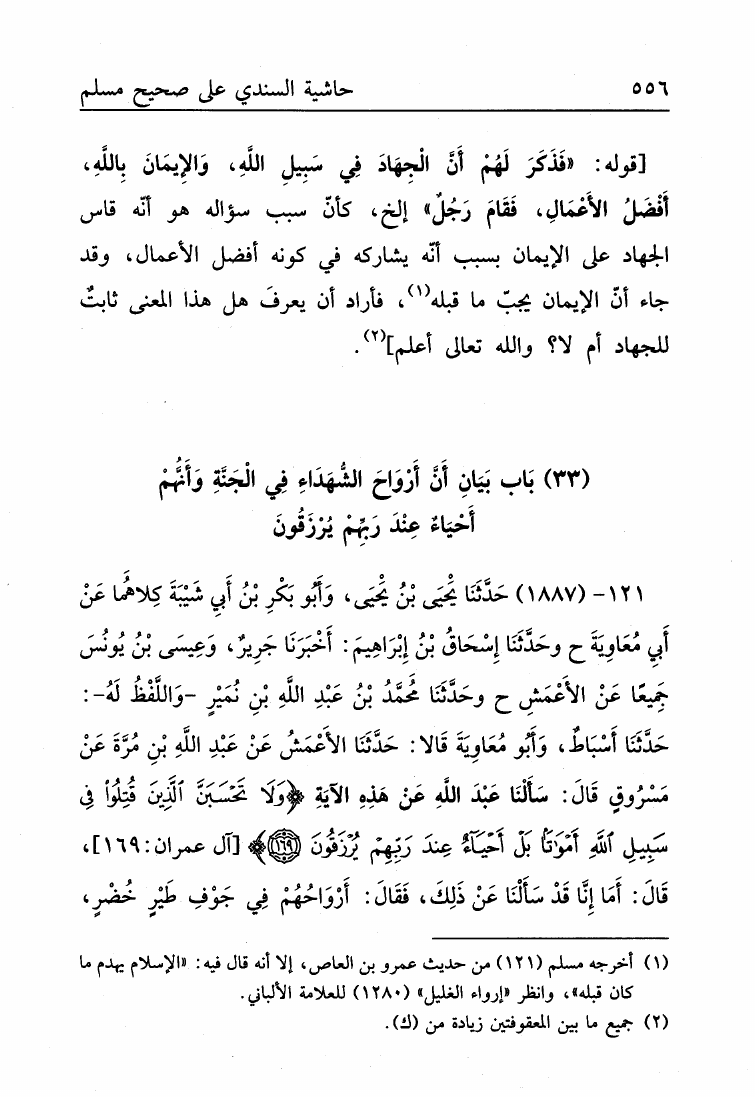 ٥٥٦ حاشية السندي على صحيح مسلم
[قوله: «فَذَكَرَ لَهُمْ أَنَّ الْجِهَادَ فِي سَبِيلِ اللَّهِ، وَالإِيمَانَ بِاللَّهِ،
أَفْضَلُ الأَعْمَالِ، فَقَامَ رَجُلٌ» إلخ، كأنّ سبب سؤاله هو أنّه قاس
الجهاد على الإيمان بسبب أنّه يشاركه في كونه أفضل الأعمال، وقد
جاء أنّ الإيمان يجبّ ما قبله(١)، فأراد أن يعرفَ هل هذا المعنى ثابتٌ
للجهاد أم لا؟ والله تعالى أعلم](٢).
(٣٣) بَاب بَيَانِ أَنَّ أَرْوَاحَ الشُّهَدَاءِ فِي الْجَنَّةِ وَأَنَّهُمْ
أَحْيَاءٌ عِنْدَ رَبِّهِمْ يُرْزَقُونَ
١٢١- (١٨٨٧) حَدَّثَنَا يَحْيَى بْنُ يَحْيَى، وَأَبُو بَكْرِ بْنُ أَبِي شَيْبَةَ كِلاهُمَا عَنْ
أَبِي مُعَاوِيَةَ ح وحَدَّثَنَا إِسْحَاقُ بْنُ إِبْرَاهِيمَ: أَخْبَرَنَا جَرِيرٌ، وَعِيسَى بْنُ يُونُسَ
جَمِيعًا عَنْ الأَعْمَشِ ح وحَدَّثَنَا مُحَمَّدُ بْنُ عَبْدِ اللَّهِ بْنِ نُمَيْرٍ -وَاللَّفْظُ لَهُ-:
حَدَّثَنَا أَسْبَاطٌ، وَأَبُو مُعَاوِيَةَ قَالا: حَدَّثَنَا الأَعْمَشُ عَنْ عَبْدِ اللَّهِ بْنِ مُرَّةَ عَنْ
مَسْرُوقٍ قَالَ: سَأَلْنَا عَبْدَ اللَّهِ عَنْ هَذِهِ الآيَةِ ﴿وَلَا تَحْسَبَنَّ ٱلَّذِينَ قُتِلُوا۟ فِى
سَبِيلِ ٱللَّهِ أَمْوَٰتًۢا بَلْ أَحْيَآءٌ عِندَ رَبِّهِمْ يُرْزَقُونَ ١٦٩﴾ [آل عمران:١٦٩]،
قَالَ: أَمَا إِنَّا قَدْ سَأَلْنَا عَنْ ذَلِكَ، فَقَالَ: أَرْوَاحُهُمْ فِي جَوْفِ طَيْرٍ خُضْرٍ،
(١) أخرجه مسلم (١٢١) من حديث عمرو بن العاص، إلا أنه قال فيه: «الإسلام يهدم ما
كان قبله»، وانظر «إرواء الغليل» (١٢٨٠) للعلامة الألباني.
(٢) جميع ما بين المعقوفتين زيادة من (ك).